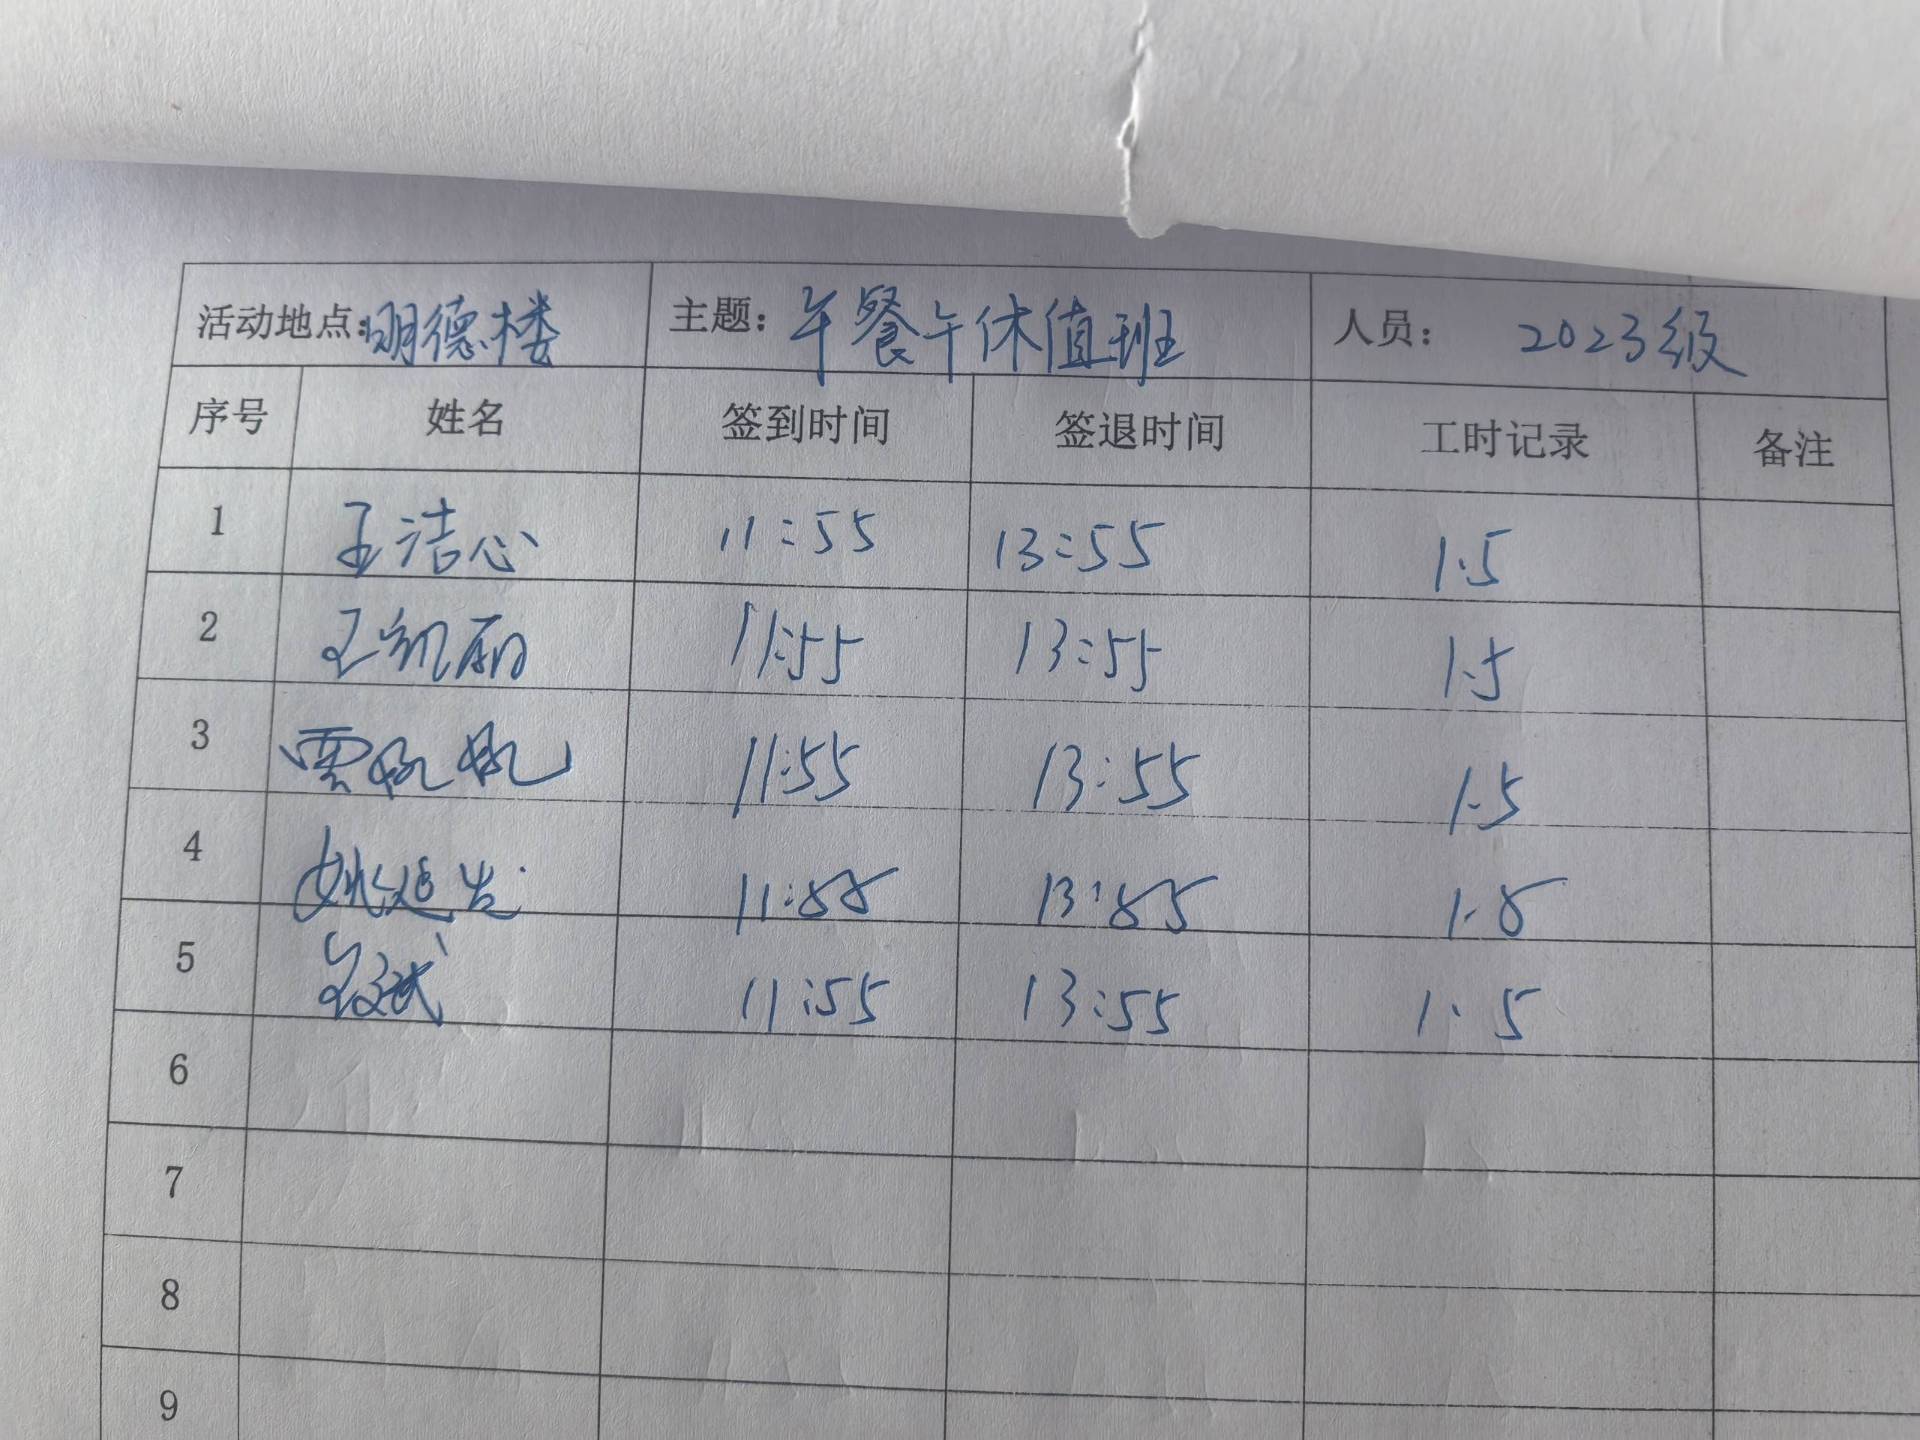 活动地点:明德楼 主题:午餐午休值班 人员: 2023级
序号 姓名 签到时间 签退时间 工时记录 备注
1 王洁心 11:55 13:55 1.5
2 王凯丽 11:55 13:55 1.5
3 11:55 13:55 1.5
4 姚延 11:55 13:55 1.5
5 11:55 13:55 1.5
6
7
8
9